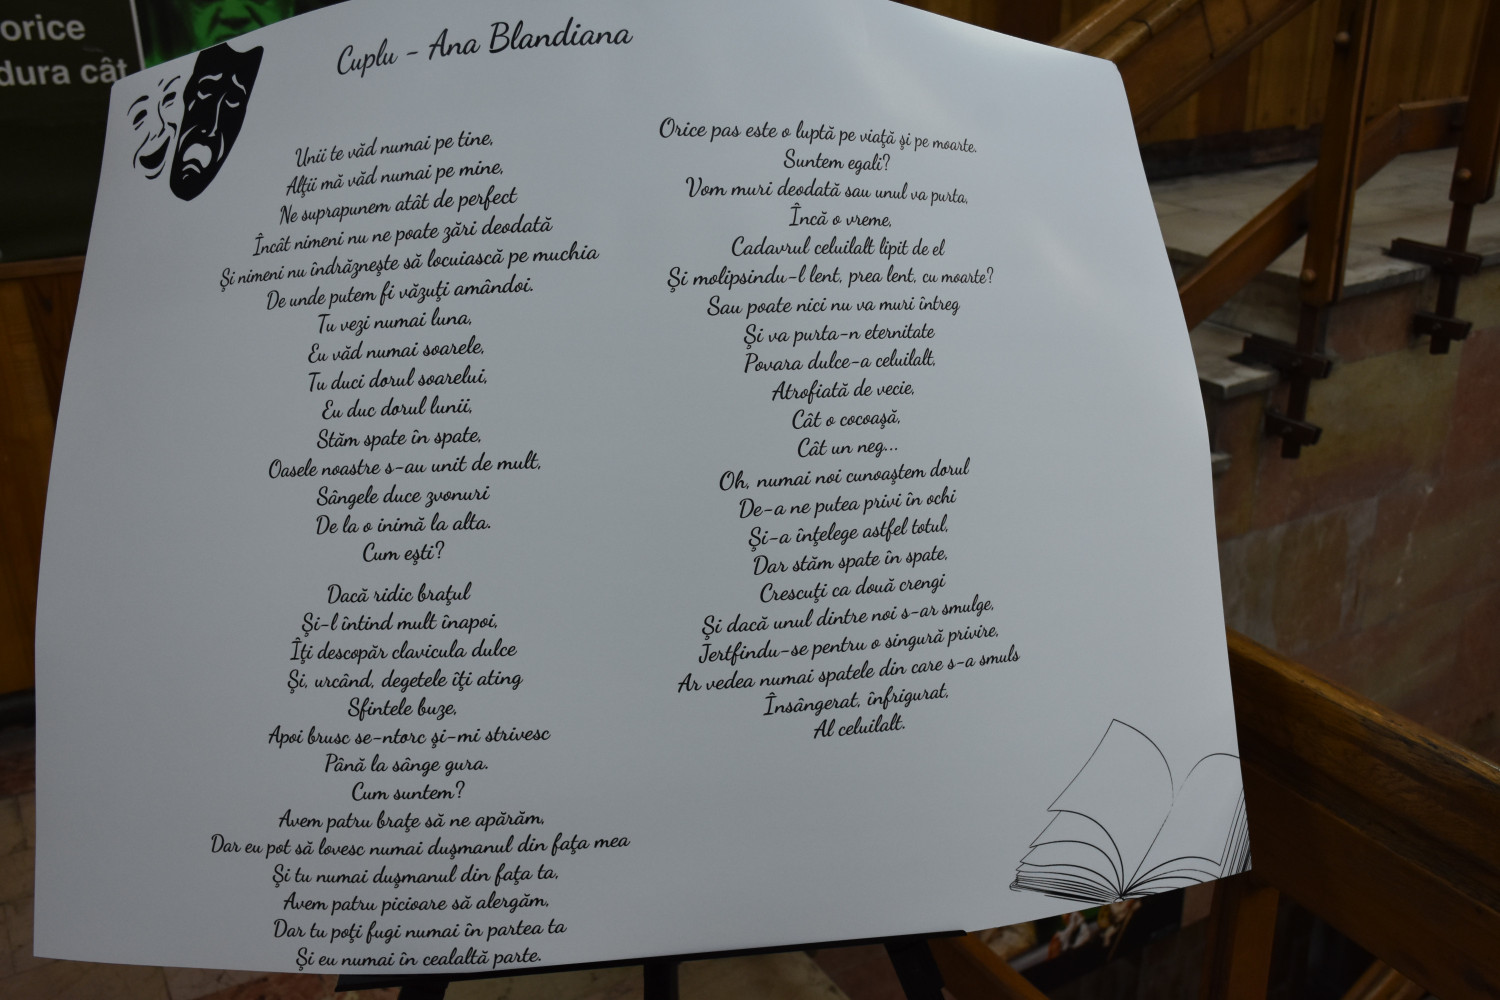 orice
dura cât
Cuplu - Ana Blandiana
Unii te văd numai pe tine,
Alţii mă văd numai pe mine,
Ne suprapunem atât de perfect
Încât nimeni nu ne poate zări deodată
Şi nimeni nu îndrăzneşte să locuiască pe muchia
De unde putem fi văzuţi amândoi.
Tu vezi numai luna,
Eu văd numai soarele,
Tu duci dorul soarelui,
Eu duc dorul lunii,
Stăm spate în spate,
Oasele noastre s-au unit de mult,
Sângele duce zvonuri
De la o inimă la alta.
Cum eşti?
Dacă ridic braţul
Şi-l întind mult înapoi,
Îţi descopăr clavicula dulce
Şi, urcând, degetele îţi ating
Sfintele buze,
Apoi brusc se-ntorc şi-mi strivesc
Până la sânge gura.
Cum suntem?
Avem patru braţe să ne apărăm,
Dar eu pot să lovesc numai duşmanul din faţa mea
Şi tu numai duşmanul din faţa ta,
Avem patru picioare să alergăm,
Dar tu poţi fugi numai în partea ta
Şi eu numai în cealaltă parte.
Orice pas este o luptă pe viaţă şi pe moarte.
Suntem egali?
Vom muri deodată sau unul va purta,
Încă o vreme,
Cadavrul celuilalt lipit de el
Şi molipsindu-l lent, prea lent, cu moarte?
Sau poate nici nu va muri întreg
Şi va purta-n eternitate
Povara dulce-a celuilalt,
Atrofiată de vecie,
Cât o cocoaşă,
Cât un neg...
Oh, numai noi cunoaştem dorul
De-a ne putea privi în ochi
Şi-a înţelege astfel totul,
Dar stăm spate în spate,
Crescuţi ca două crengi
Şi dacă unul dintre noi s-ar smulge,
Jertfindu-se pentru o singură privire,
Ar vedea numai spatele din care s-a smuls
Însângerat, înfrigurat,
Al celuilalt.